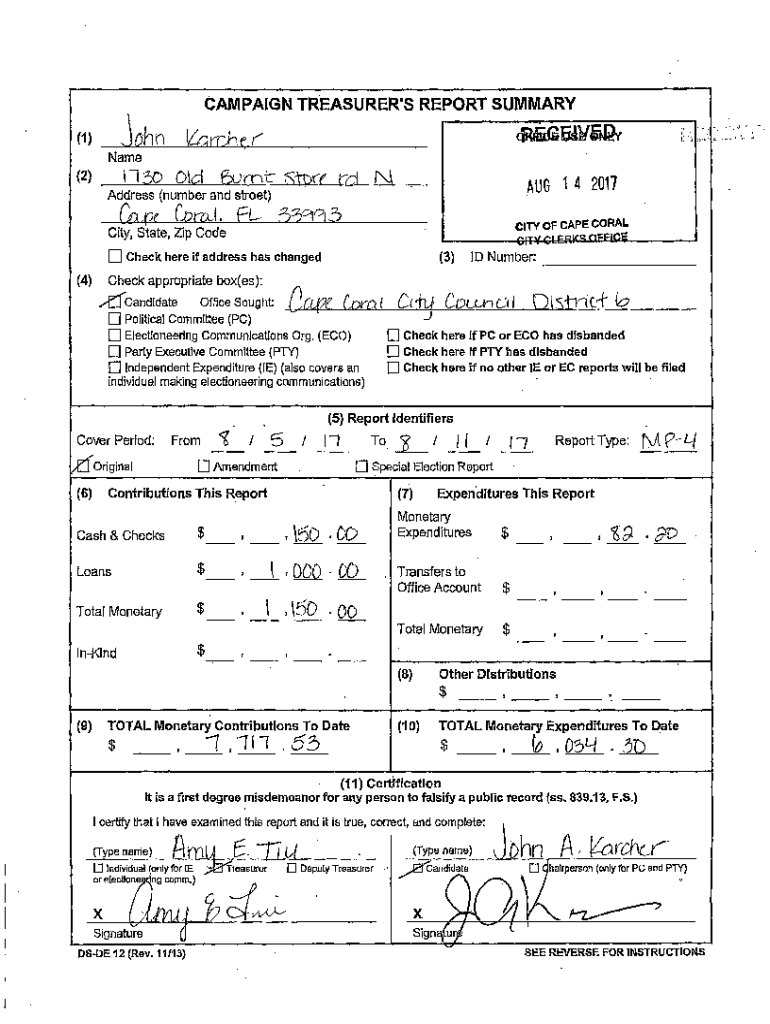 CAMPAIGN TREASURER'S REPORT SUMMARY
(1) John Karcher
Name
RECEIVED
(2) 1730 Old Burnt Store rd N
Address (number and street)
AUG 14 2017
Cape Coral, FL 33993
City, State, Zip Code
CITY OF CAPE CORAL
CITY CLERKS OFFICE
☐ Check here if address has changed (3) ID Number:
(4) Check appropriate box(es):
☑ Candidate Office Sought: Cape Coral City Council District 6
☐ Political Committee (PC)
☐ Electioneering Communications Org. (ECO) ☐ Check here if PC or ECO has disbanded
☐ Party Executive Committee (PTY) ☐ Check here if PTY has disbanded
☐ Independent Expenditure (IE) (also covers an ☐ Check here if no other IE or EC reports will be filed
individual making electioneering communications)
(5) Report Identifiers
Cover Period: From 8 / 5 / 17 To 8 / 11 / 17 Report Type: MP-4
☑ Original ☐ Amendment ☐ Special Election Report
(6) Contributions This Report (7) Expenditures This Report
Cash & Checks $ , , 150 . 00
Monetary
Expenditures $ , , 82 . 20
Loans $ , 1 , 000 . 00
Transfers to
Office Account $ , , .
Total Monetary $ , 1 , 150 . 00
Total Monetary $ , , .
In-Kind $ , , .
(8) Other Distributions
$ , , .
(9) TOTAL Monetary Contributions To Date (10) TOTAL Monetary Expenditures To Date
$ , 7 , 717 . 53 $ , 6 , 034 . 30
(11) Certification
It is a first degree misdemeanor for any person to falsify a public record (ss. 839.13, F.S.)
I certify that I have examined this report and it is true, correct, and complete:
(Type name) Amy E. Tiu (Type name) John A. Karcher
☐ Individual (only for IE ☑ Treasurer ☐ Deputy Treasurer ☑ Candidate ☐ Chairperson (only for PC and PTY)
or electioneering comm.)
X Amy E Tiu X
Signature Signature
DS-DE 12 (Rev. 11/13) SEE REVERSE FOR INSTRUCTIONS